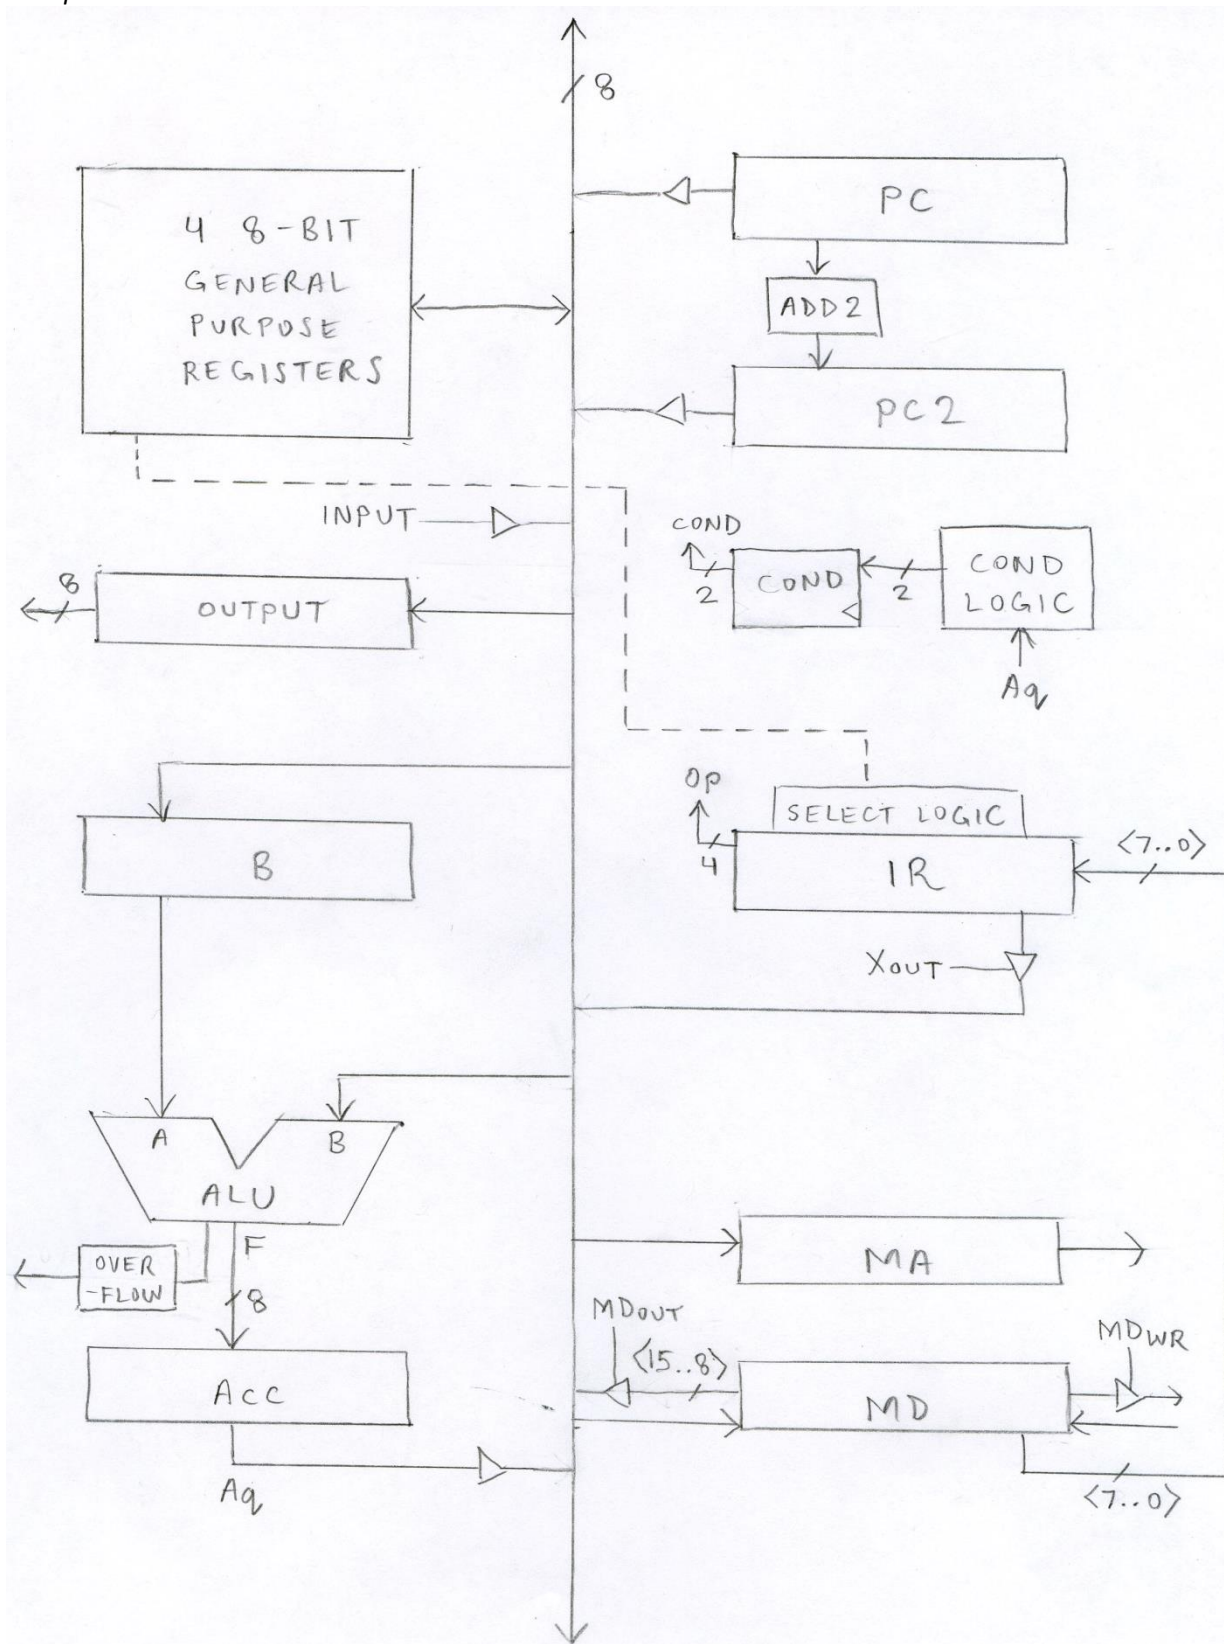 8
4 8-BIT
GENERAL
PURPOSE
REGISTERS
PC
ADD2
PC2
INPUT
8
OUTPUT
COND
2
COND
2
COND
LOGIC
Aq
B
OP
4
SELECT LOGIC
IR
<7..0>
XOUT
A
B
ALU
F
OVER
-FLOW
8
ACC
Aq
MA
MDOUT
<15..8>
MD
MDWR
<7..0>